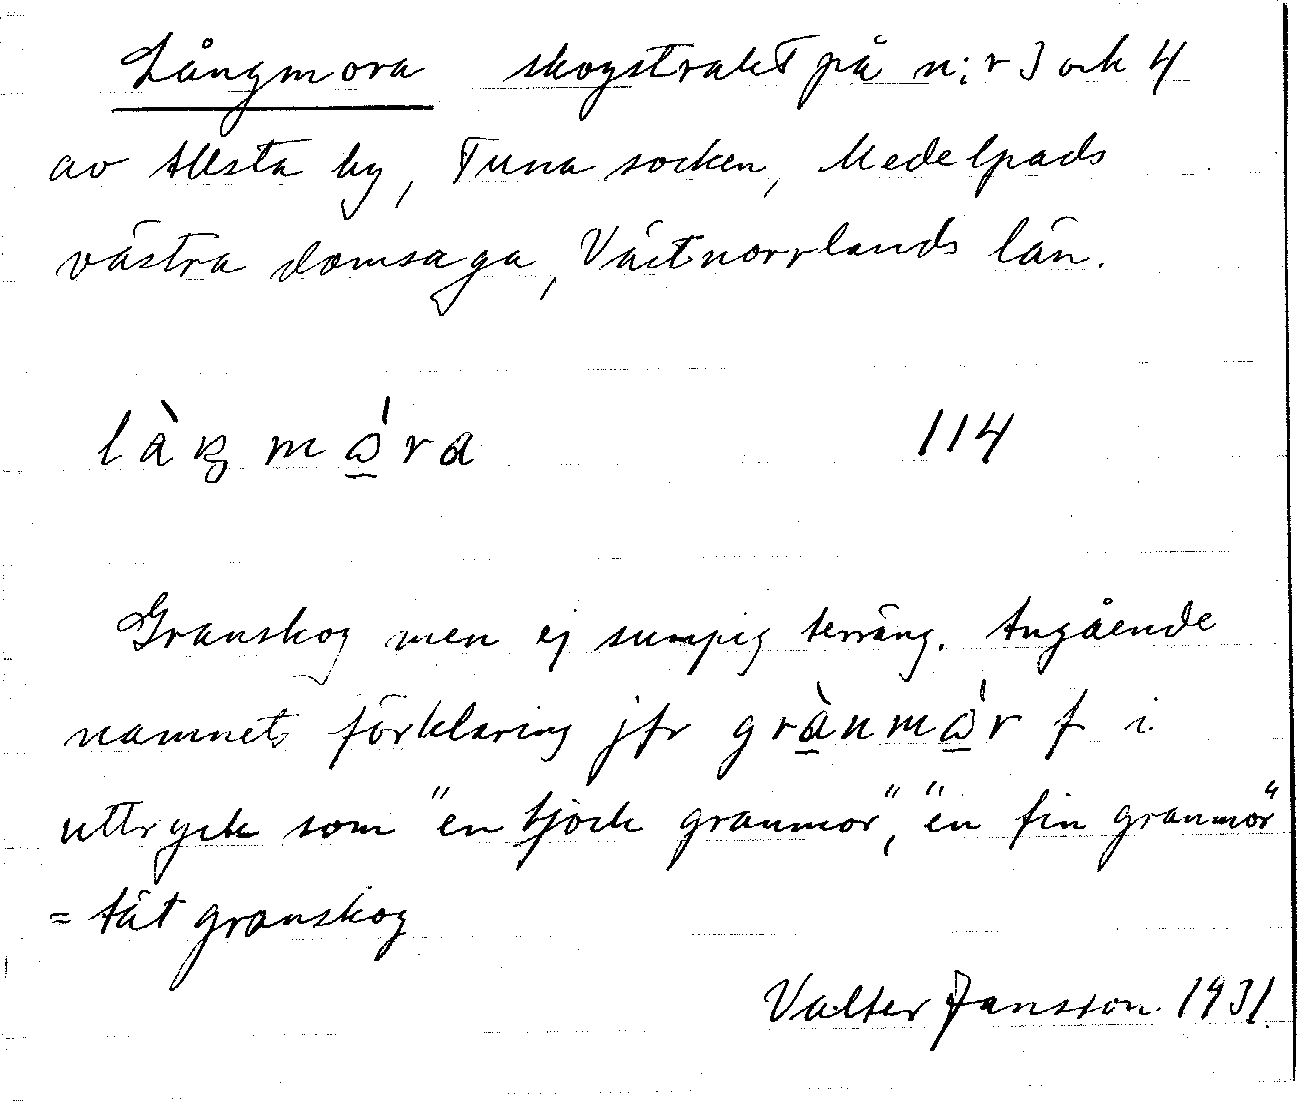 Långmora skogstrakt på n:r 3 och 4
av Allsta by, Tuna socken, Medelpads
västra domsaga, Västnorrlands län.
làŋmώ̲ra 114
Granskog men ej sumpig terräng. Angående
namnets förklaring jfr grà̲nmώ̲r f i
uttryck som "en tjock granmor", "en fin granmor"
= tät granskog
Valter Jansson 1931.